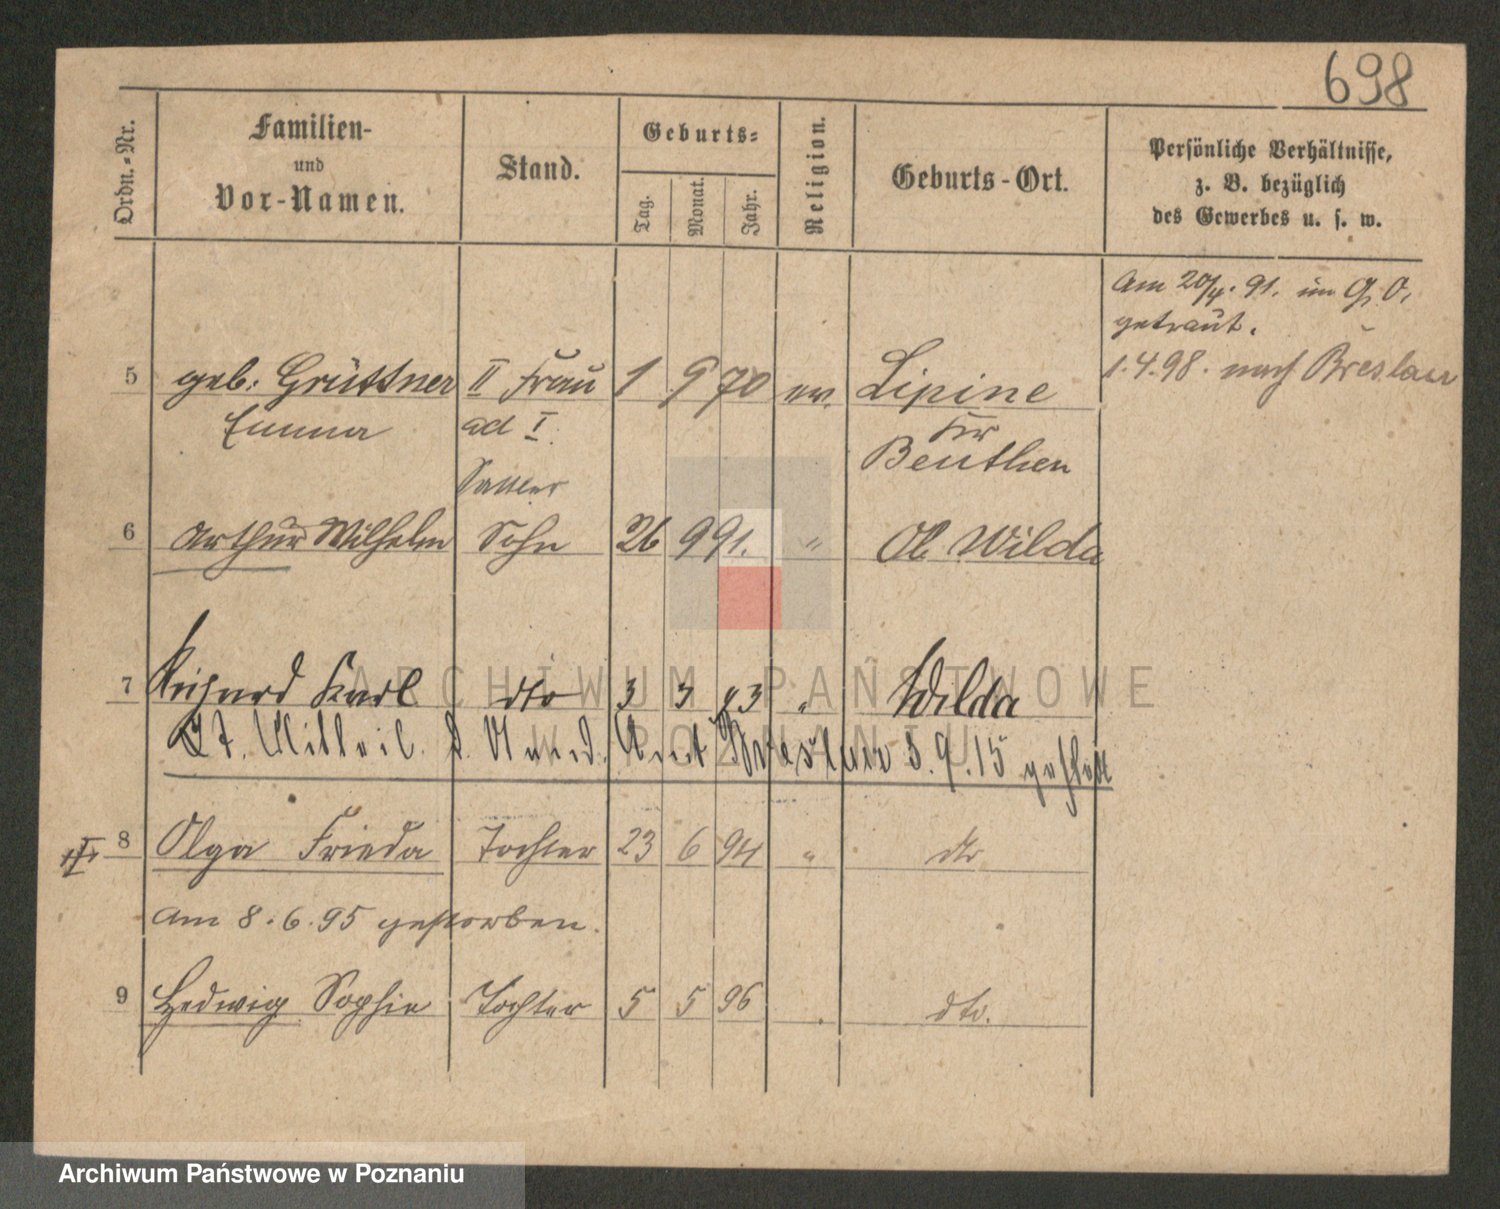 698
Ordn.-Nr.
Familien-
und
Vor-Namen.
Stand.
Geburts-
Tag.
Monat.
Jahr.
Religion.
Geburts-Ort.
Persönliche Verhältnisse,
z. B. bezüglich
des Gewerbes u. s. w.
Am 20/4. 91. im G. O.
getraut.
1.4.98. nach Breslau
5 geb: Grüttner II Frau 1 9 70 ev. Lipine
Emma ad I. Kr
Beuthen
Sattler
6 Arthur Wilhelm Sohn 26 9 91. " Ob Wilda
7 Richard Karl dto 3 3 93 " Wilda
Lt. Mitteil. d. Stand. Amt Breslau 3.9.15
8 Olga Frieda Tochter 23 6 94 " dto
Am 8.6.95 gestorben.
9 Hedwig Sophie Tochter 5 5 96 dto.
ARCHIWUM PAŃSTWOWE
W POZNANIU
Archiwum Państwowe w Poznaniu